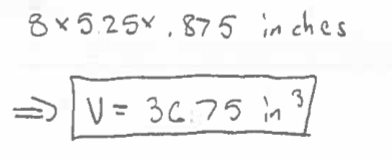 8 x 5.25 x .875 inches
⇒ V = 36.75 in³